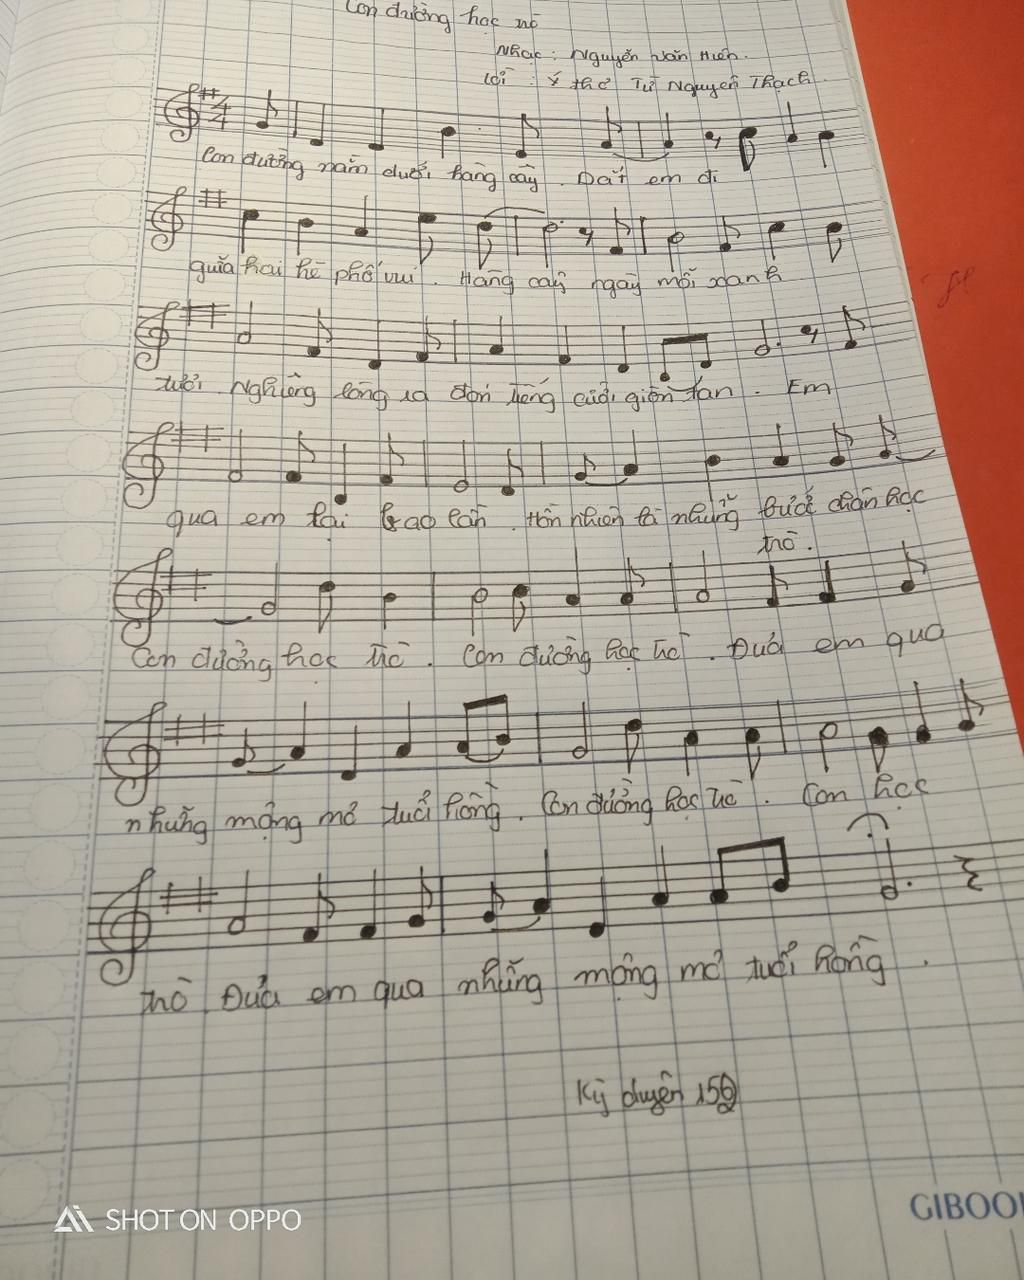 Con đường học trò
Nhạc : Nguyễn Văn Hiên.
Lời : Ý thơ Từ Nguyên Thạch.
4/4
Con đường nằm dưới hàng cây . Dắt em đi
giữa hai hè phố vui . Hàng cây ngày mỗi xanh
tươi . Nghiêng lòng ra đón tiếng cười giòn tan . Em
qua em lại bao lần . Hồn nhiên là những bước chân học
trò .
Con đường học trò . Con đường học trò . Đưa em qua
những mộng mơ tuổi hồng . Con đường học trò . Con học
trò . Đưa em qua những mộng mơ tuổi hồng .
Kỳ duyên
SHOT ON OPPO